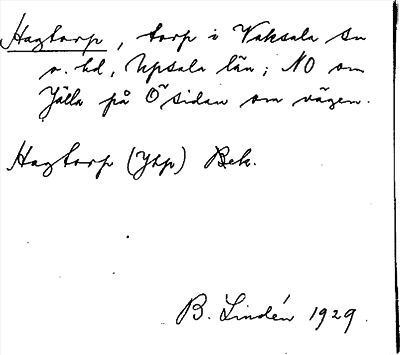 Hagtorp, torp i Vaksala sn
o. hd, Upsala län; NO om
Jälla på Ö sidan om vägen.
Hagtorp (Ykp) Bek.
B. Lindén 1929.